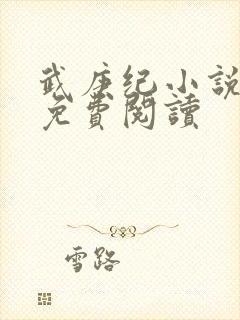 武庚纪小説
免費閱讀
雪路